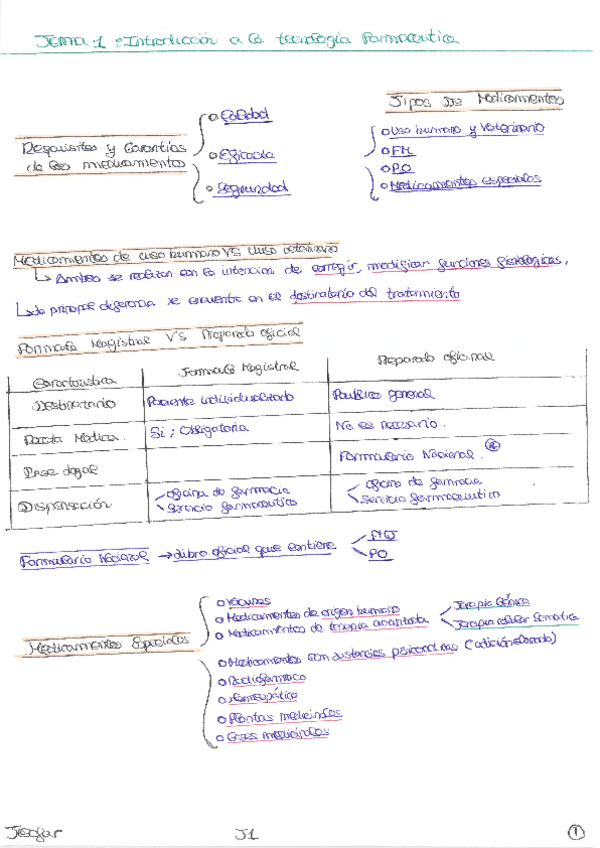 TEMA 1 : Introducción a la tecnología farmacéutica
Requisitos y Garantías
de los medicamentos
o Calidad
o Eficacia
o Seguridad
Tipos de Medicamentos
o Uso humano y Veterinario
o FM
o PO
o Medicamentos especiales
Medicamentos de uso humano VS Uso veterinario
↳ Ambos se realizan con la intención de corregir, modificar funciones fisiológicas.
↳ la principal diferencia se encuentra en el destinatario del tratamiento
Formula Magistral VS Preparado oficial
Caracteristica Formula Magistral Preparado oficinal
Destinatario Paciente individualizado Publico general
Receta Medica. Si ; Obligatoria No es necesario.
Base legal Formulario Nacional.
Dispensación oficina de farmacia servicio farmaceutico oficina de farmacia servicio farmaceutico
Formulario Nacional → libro oficial que contiene
PO
Medicamentos Especiales
o Vacunas
o Medicamentos de origen humano
o Medicamentos de terapia avanzada
Terapia Génica
Terapia celular Somatica
o Medicamentos con sustancias psicoactivas
o Radiofarmaco
o Homeopático
o Plantas medicinales
o Gases medicinales
Tecfar
T1
1